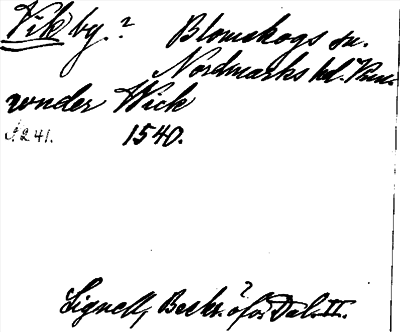 Vik by. ? Blomskogs sn.
Nordmarks hd. Vrm.
vnder Wick
Å 241. 1540.
Lignell, Beskr. öfver Dal. II.